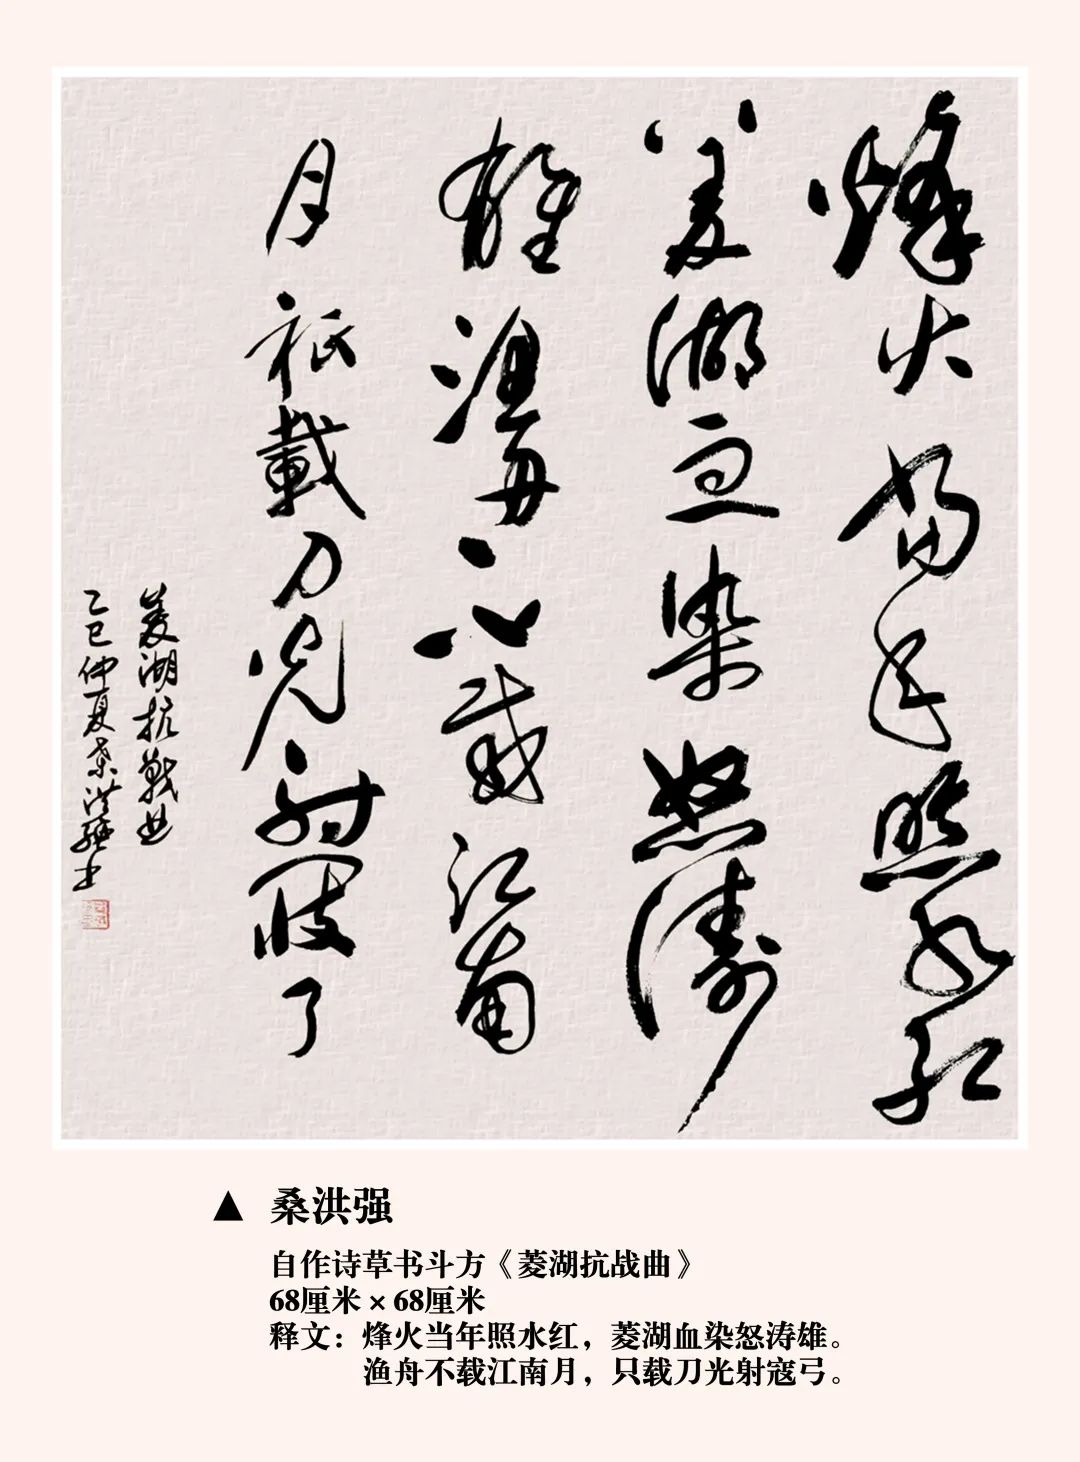 烽火当年照水红
菱湖血染怒涛
雄渔舟不载江南
月祇載刀光射寇弓
菱湖抗戰曲
乙巳仲夏桑洪强书
▲ 桑洪强
自作诗草书斗方《菱湖抗战曲》
68厘米×68厘米
释文：烽火当年照水红，菱湖血染怒涛雄。
渔舟不载江南月，只载刀光射寇弓。